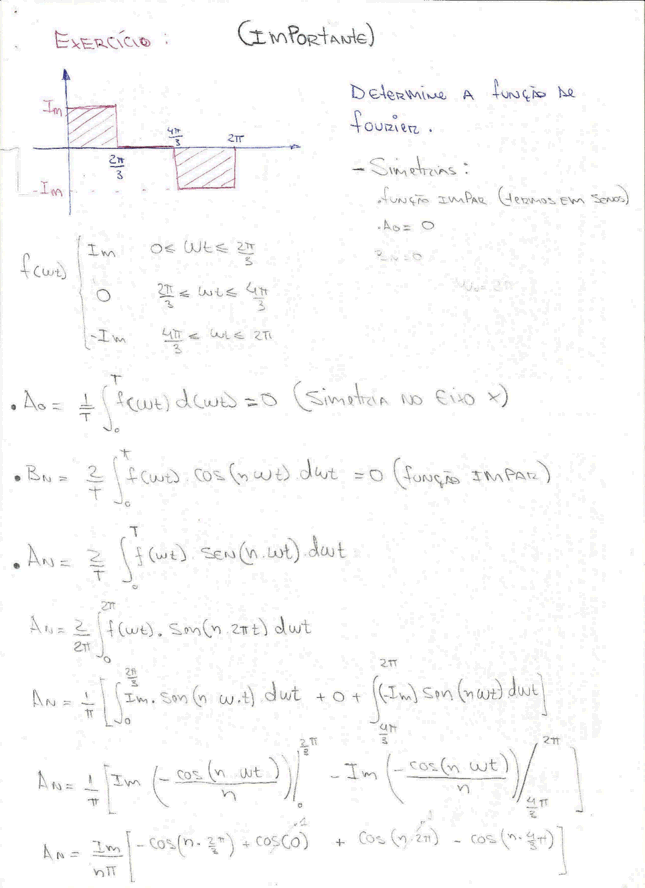 EXERCÍCIO : (IMPORTANTE)
Im
-Im
2π/3
4π/3
2π
DETERMINE A FUNÇÃO DE
FOURIER.
- SIMETRIAS :
.FUNÇÃO IMPAR (TERMOS EM SENOS)
.A0 = 0
BN=0
f(wt) { Im 0 ≤ wt ≤ 2π/3
0 2π/3 ≤ wt ≤ 4π/3
-Im 4π/3 ≤ wt ≤ 2π
• A0 = 1/T ∫_0^T f(wt) d(wt) = 0 (SIMETRIA NO EIXO X)
• BN = 2/T ∫_0^T f(wt) . cos(n wt) . dwt = 0 (FUNÇÃO IMPAR)
• AN = 2/T ∫_0^T f(wt) . SEN(n.wt).dwt
AN = 2/2π ∫_0^2π f(wt) . Sen(n 2πt) dwt
AN = 1/π [ ∫_0^2π/3 Im . Sen(n w.t) dwt + 0 + ∫_4π/3^2π (-Im) Sen(nwt) dwt ]
AN = 1/π [ Im ( -cos(n wt)/n ) |_0^2/3π - Im ( -cos(n wt)/n ) /_4/3π^2π ]
AN = Im/nπ [ -cos(n. 2π/3) + cos(0) + cos(n 2π) - cos(n. 4/3π) ]